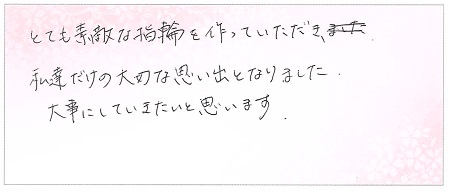 とても素敵な指輪を作っていただき、
私達だけの大切な思い出となりました。
大事にしていきたいと思います。